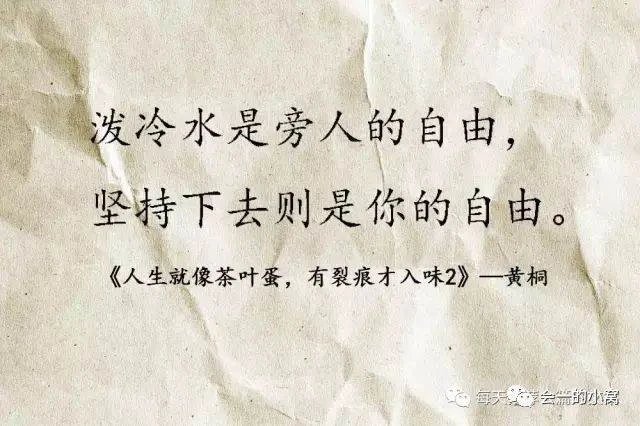 泼冷水是旁人的自由，
坚持下去则是你的自由。
《人生就像茶叶蛋，有裂痕才入味2》—黄桐
每天
会一的小窝